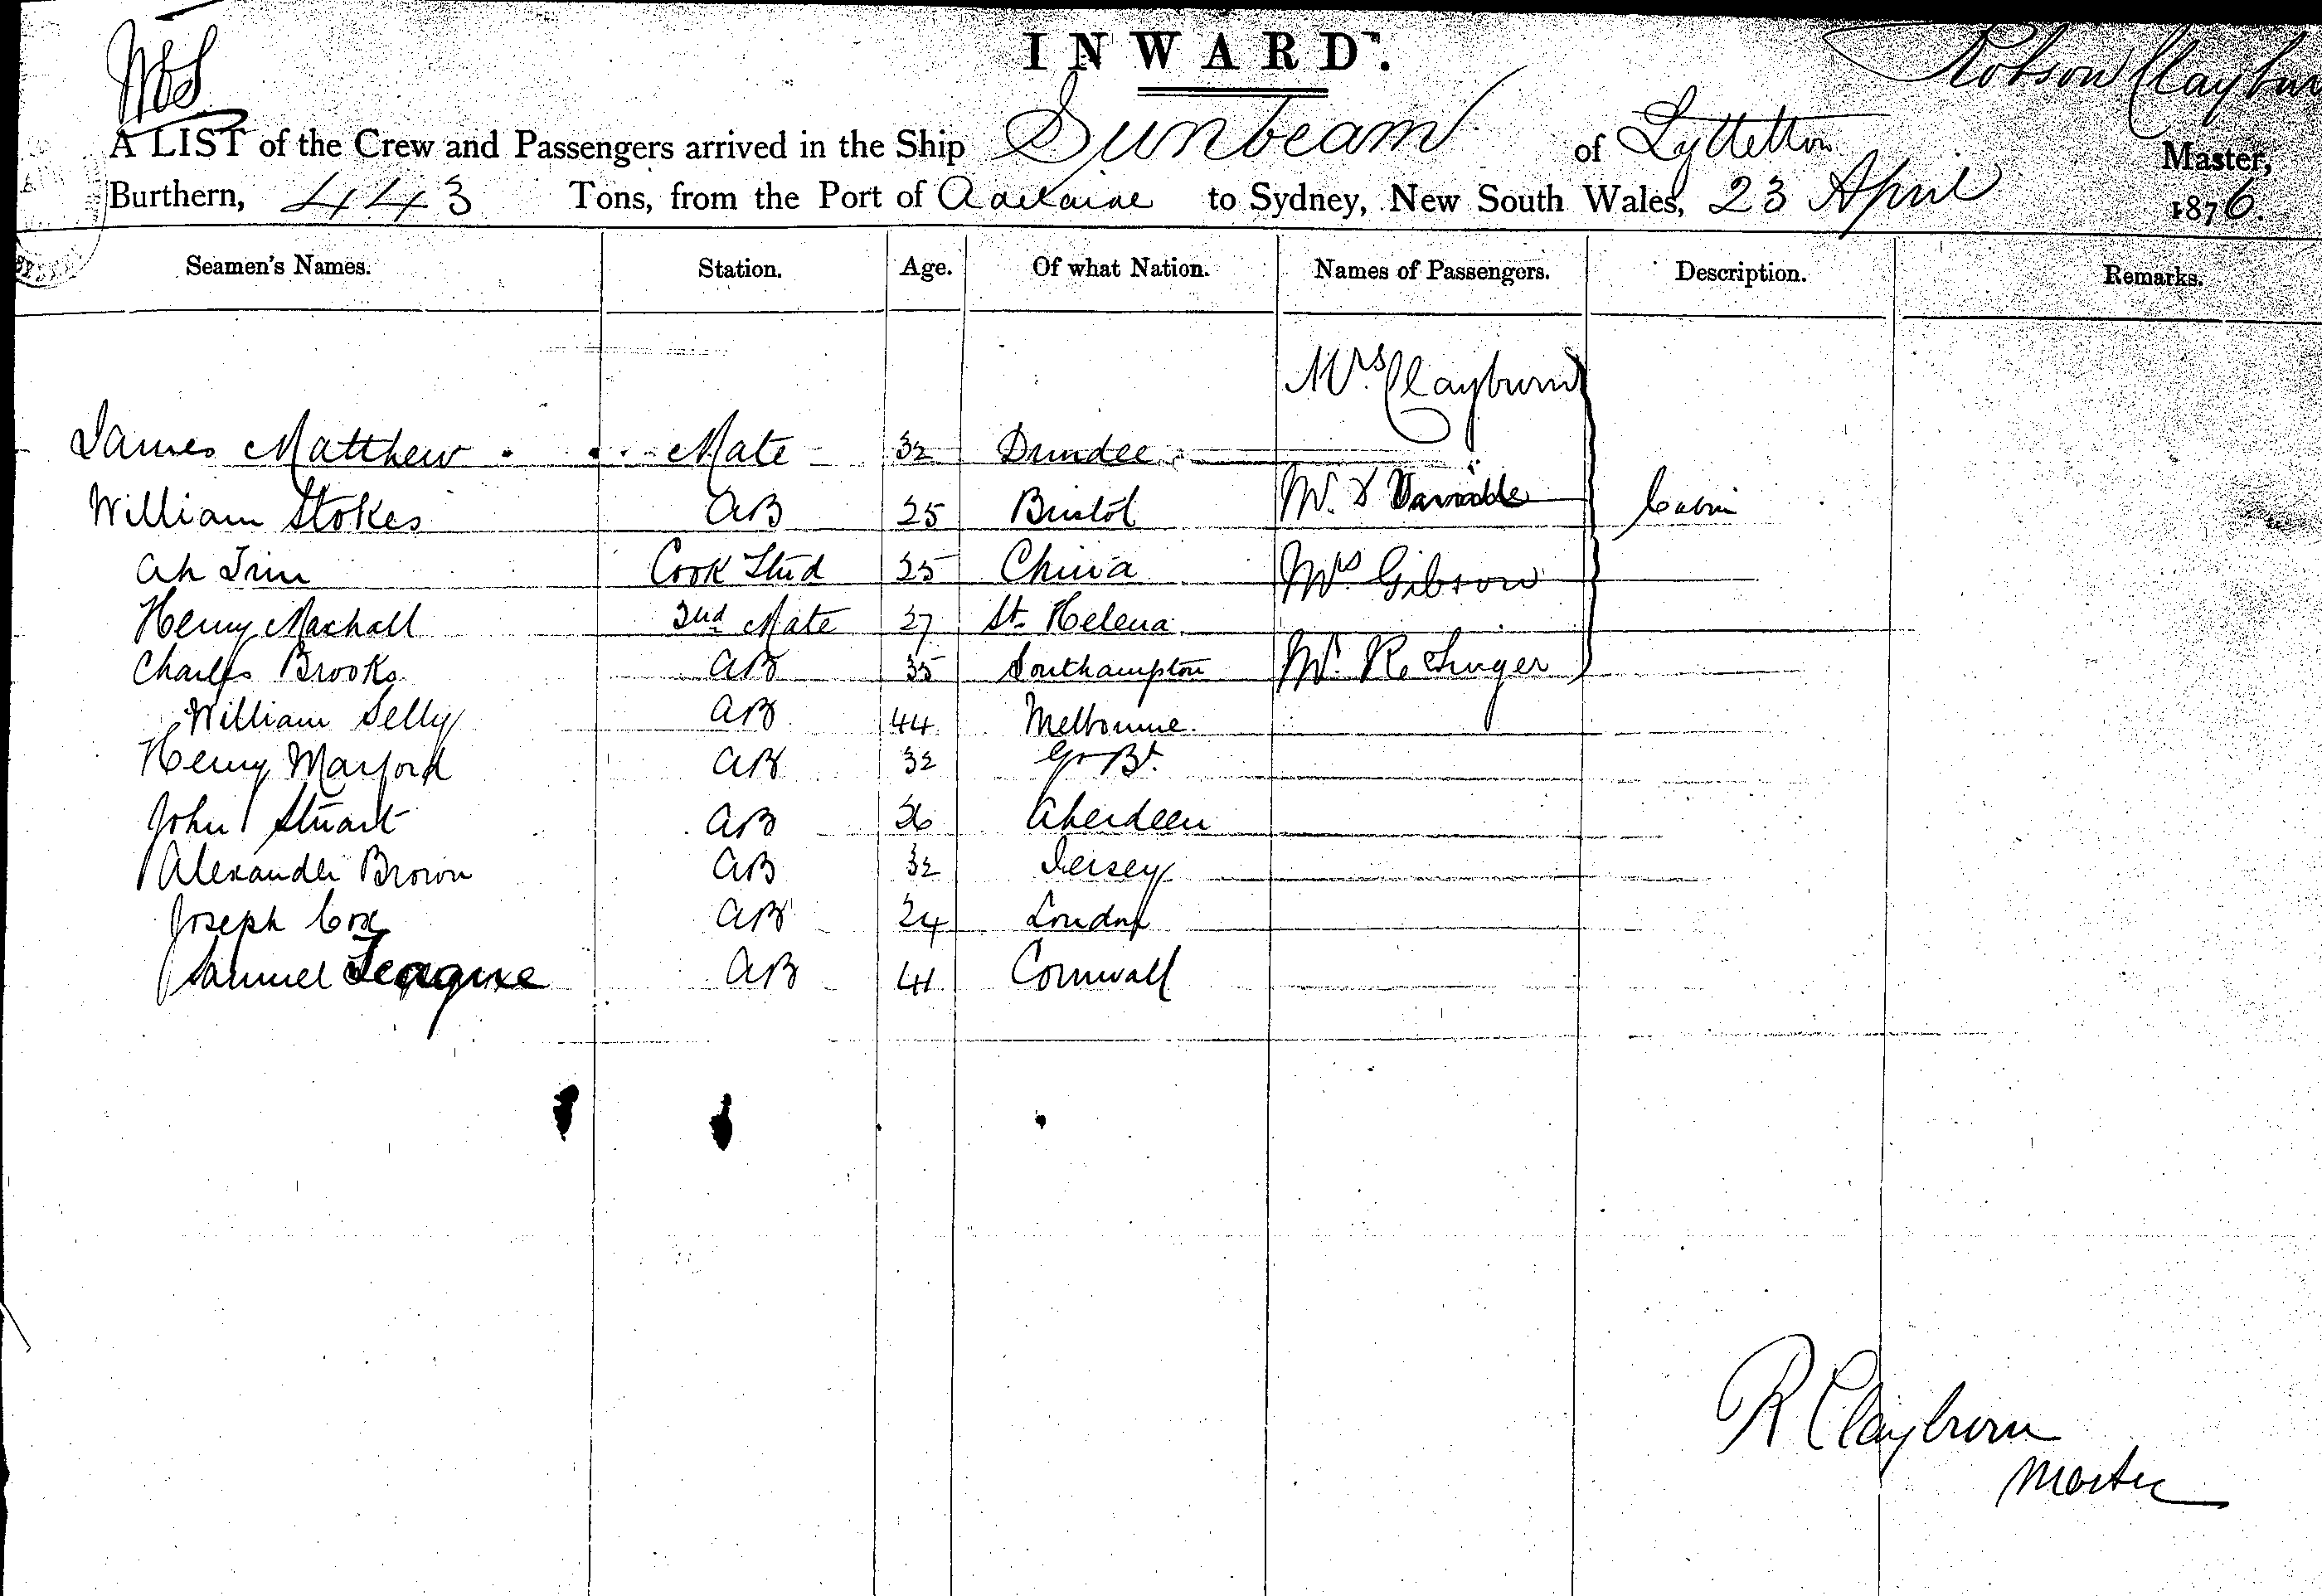 INWARD.
Robson Clayburn
A LIST of the Crew and Passengers arrived in the Ship Sunbeam of Lyttelton Master,
Burthern, 443 Tons, from the Port of Adelaide to Sydney, New South Wales, 23 April 1876.
Seamen's Names. Station. Age. Of what Nation. Names of Passengers. Description. Remarks.
Mrs Clayburn
James Matthew Mate 32 Dundee
William Stokes AB 25 Bristol Mr & Cabin
Ah Cook Stud 25 China Mrs Gibson
Henry Machall 2nd Mate 27 St. Helena
Charles Brooks AB 35 Southampton Mr. R. Singer
William Selly AB 44 Melbourne
Henry Marford AB 32 Gr Bt.
John Stuart AB 26 Aberdeen
Alexander Brown AB 32 Jersey
Joseph Cox AB 24 London
Samuel Teague AB 41 Cornwall
R Clayburn
Master